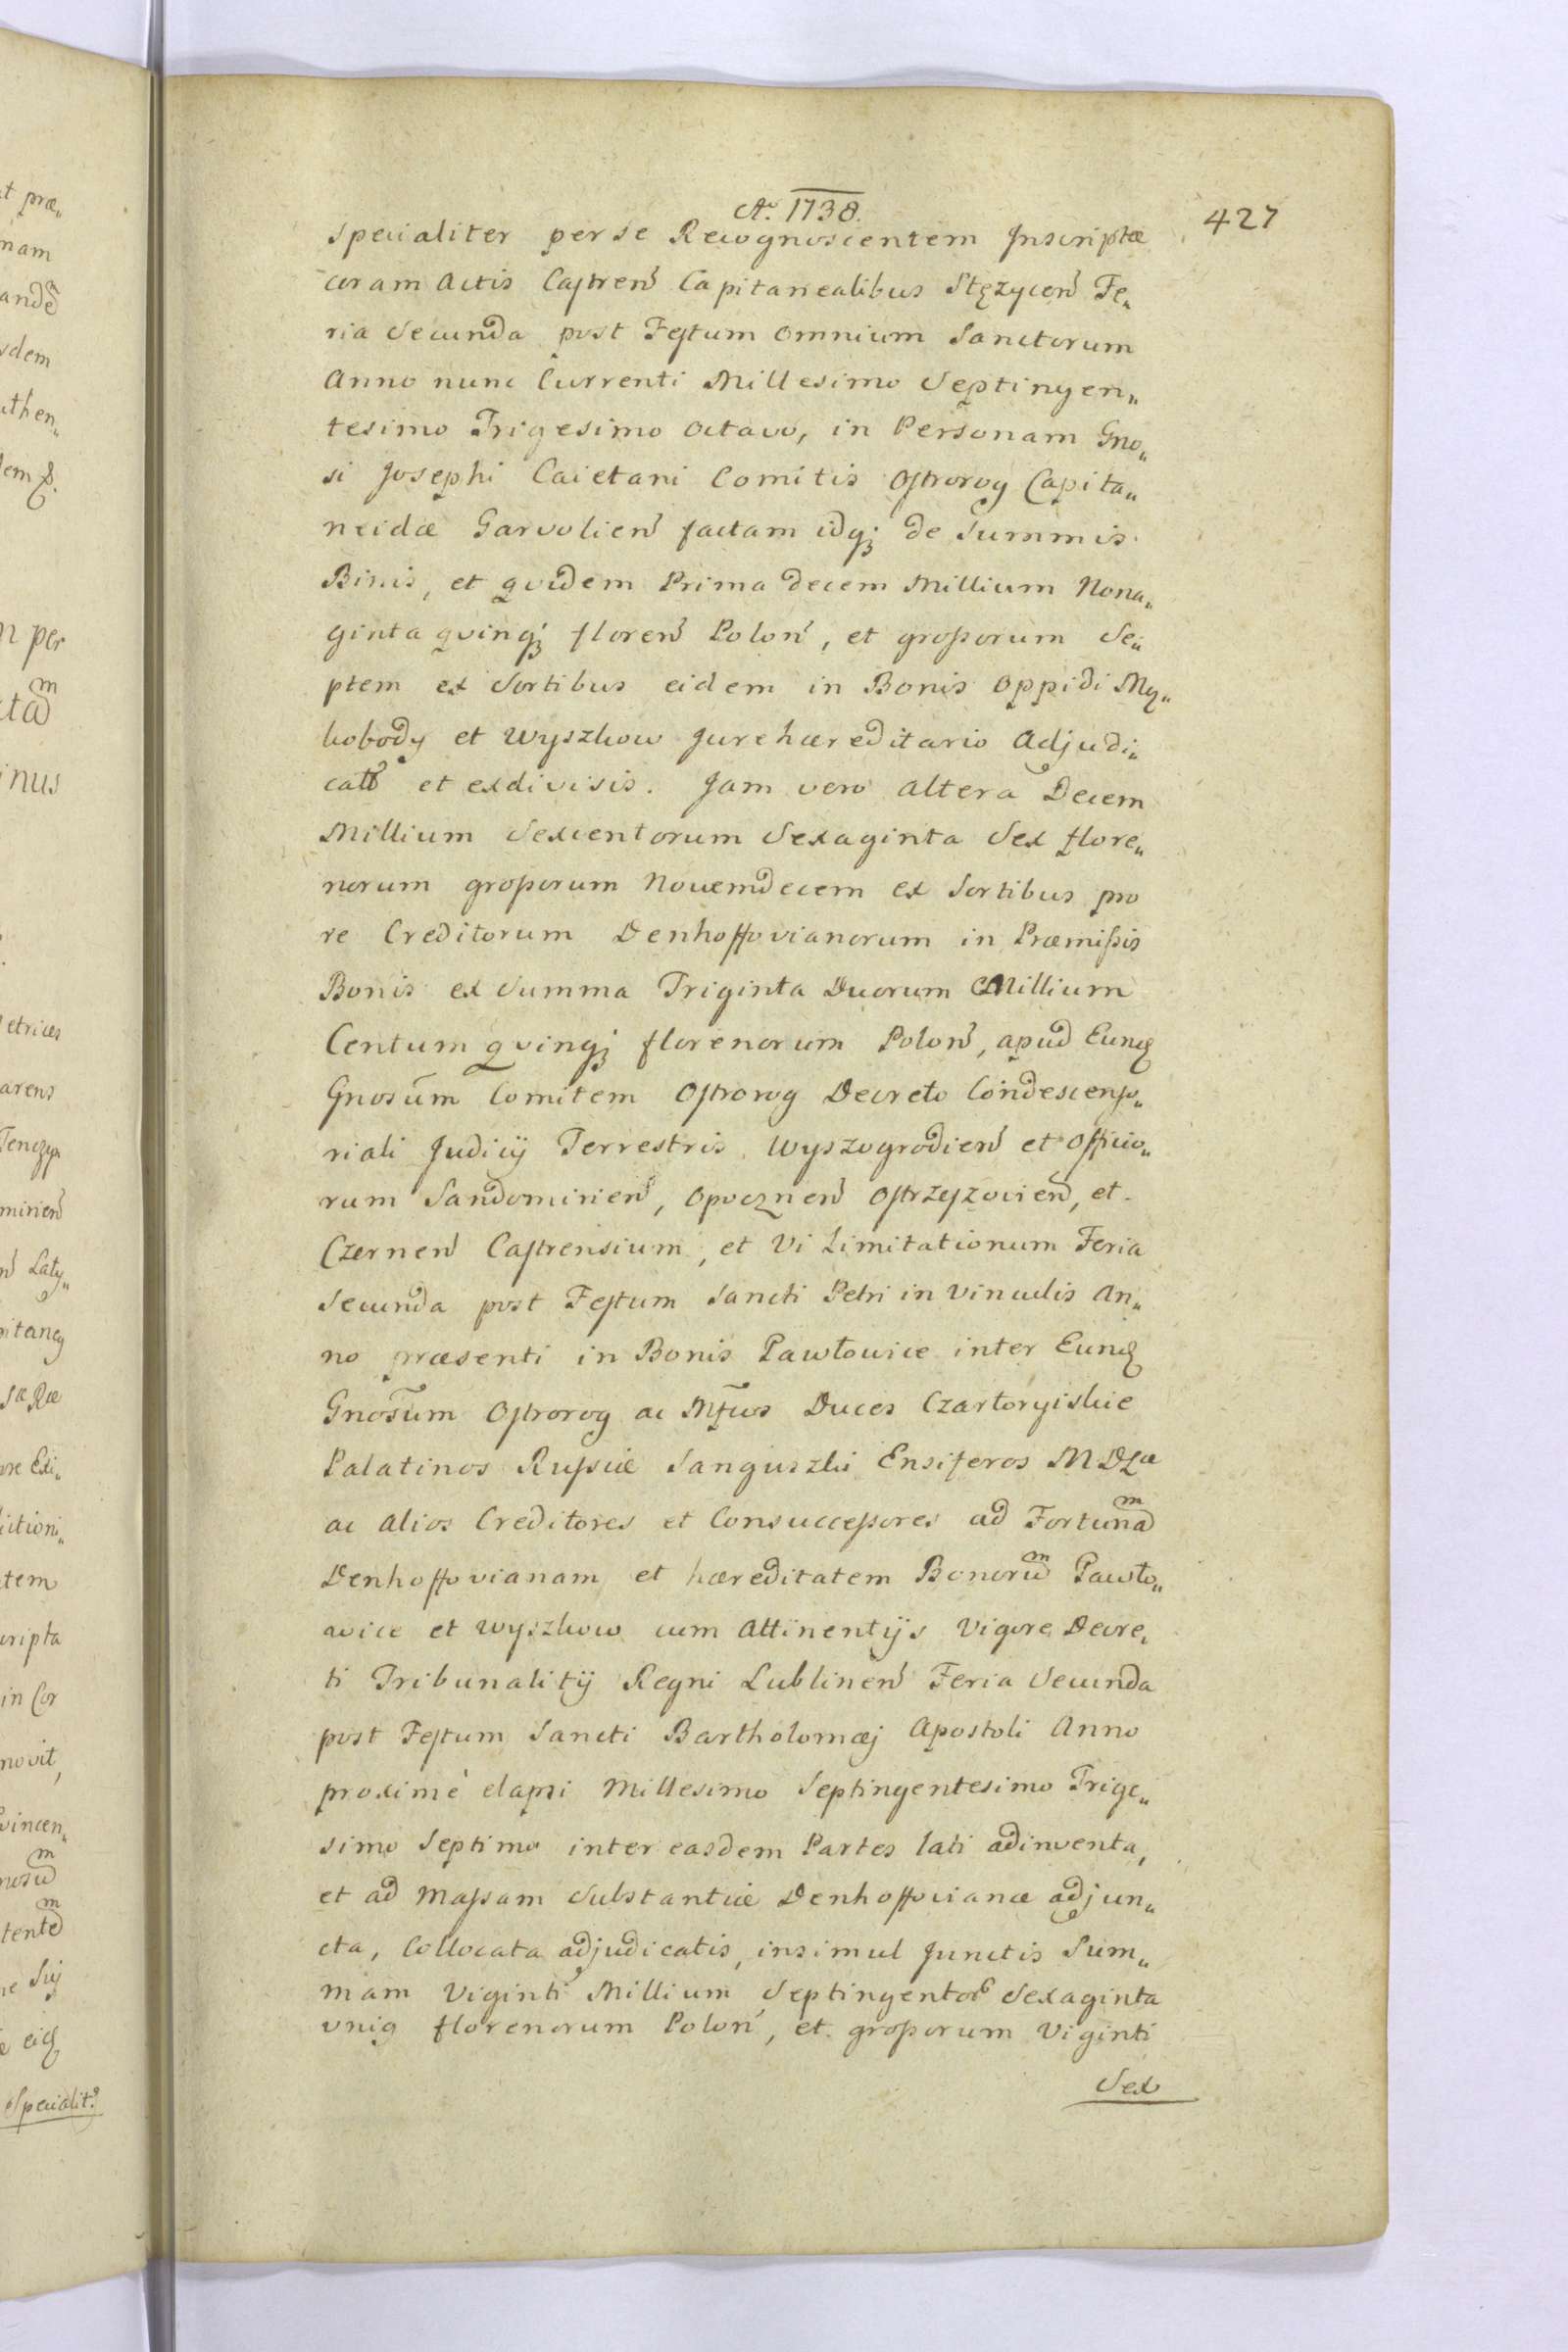 Aō 1738.
427
specialiter per se Recognoscentem Inscriptæ
coram Actis Castren̄ Capitanealibus Stęzycen̄ Fe„
ria Secunda post Festum Omnium Sanctorum
Anno nunc Currenti Millesimo Septingen„
tesimo Trigesimo Octavo, in Personam Gno„
si Josephi Caietani Comitis Ostrorog Capita„
neidæ Garvolien̄ factam idqꝫ de Summis
Binis, et qvidem Prima decem Millium Nona„
ginta qvinqꝫ floren̄ Polon̄, et grossorum Se„
ptem ex Sortibus eidem in Bonis Oppidi Mo„
kobody et Wyszkow Jure hæreditario Adjudi„
catis et exdivisis. Jam vero altera Decem
Millium Sexcentorum Sexaginta Sex flore„
norum grossorum Novemdecem ex Sortibus pro
re Creditorum Denhoffovianorum in Præmissis
Bonis ex Summa Triginta Duorum Millium
Centum qvinqꝫ florenorum Polon̄, apud Eund
Gnosūm Comitem Ostrorog Decreto Condescenso„
riali Judicij Terrestris Wyszogrodien̄ et Officio„
rum Sandomirien̄, Opocznen̄ Ostrzyzovien̄, et
Czernen̄ Castrensium, et Vi Limitationum Feria
Secunda post Festum Sancti Petri in Vinculis An„
no præsenti in Bonis Pawłowice inter Eund
Gnosūm Ostrorog ac Mf̄cos Duces Czartoryiskie
Palatinos Russiæ Sanguszki Ensiferos M D Læ
ac alios Creditores et Consuccessores ad Fortunam
Denhoffovianam et hæreditatem Bonorum Pawło„
wice et Wyszkow cum Attinentijs Vigore Decre„
ti Tribunalitij Regni Lublinen̄ Feria Secunda
post Festum Sancti Bartholomæj Apostoli Anno
proximè elapsi Millesimo Septingentesimo Trige„
simo Septimo inter easdem Partes lati adinventa,
et ad Massam Substantiæ Denhoffovianæ adjun„
cta, Collocata adjudicatis, insimul Junctis Sum„
mam Viginti Millium Septingentor Sexaginta
unig florenorum Polon̄, et grossorum Viginti
Sex